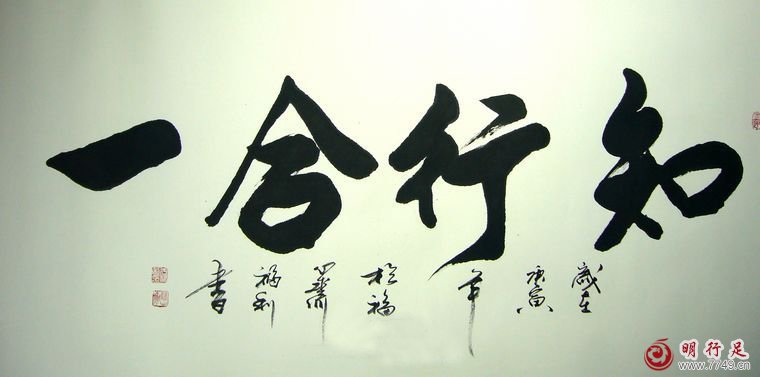 知行合一
歲在庚寅年於福齋福利書
明行足
www.7749.cn